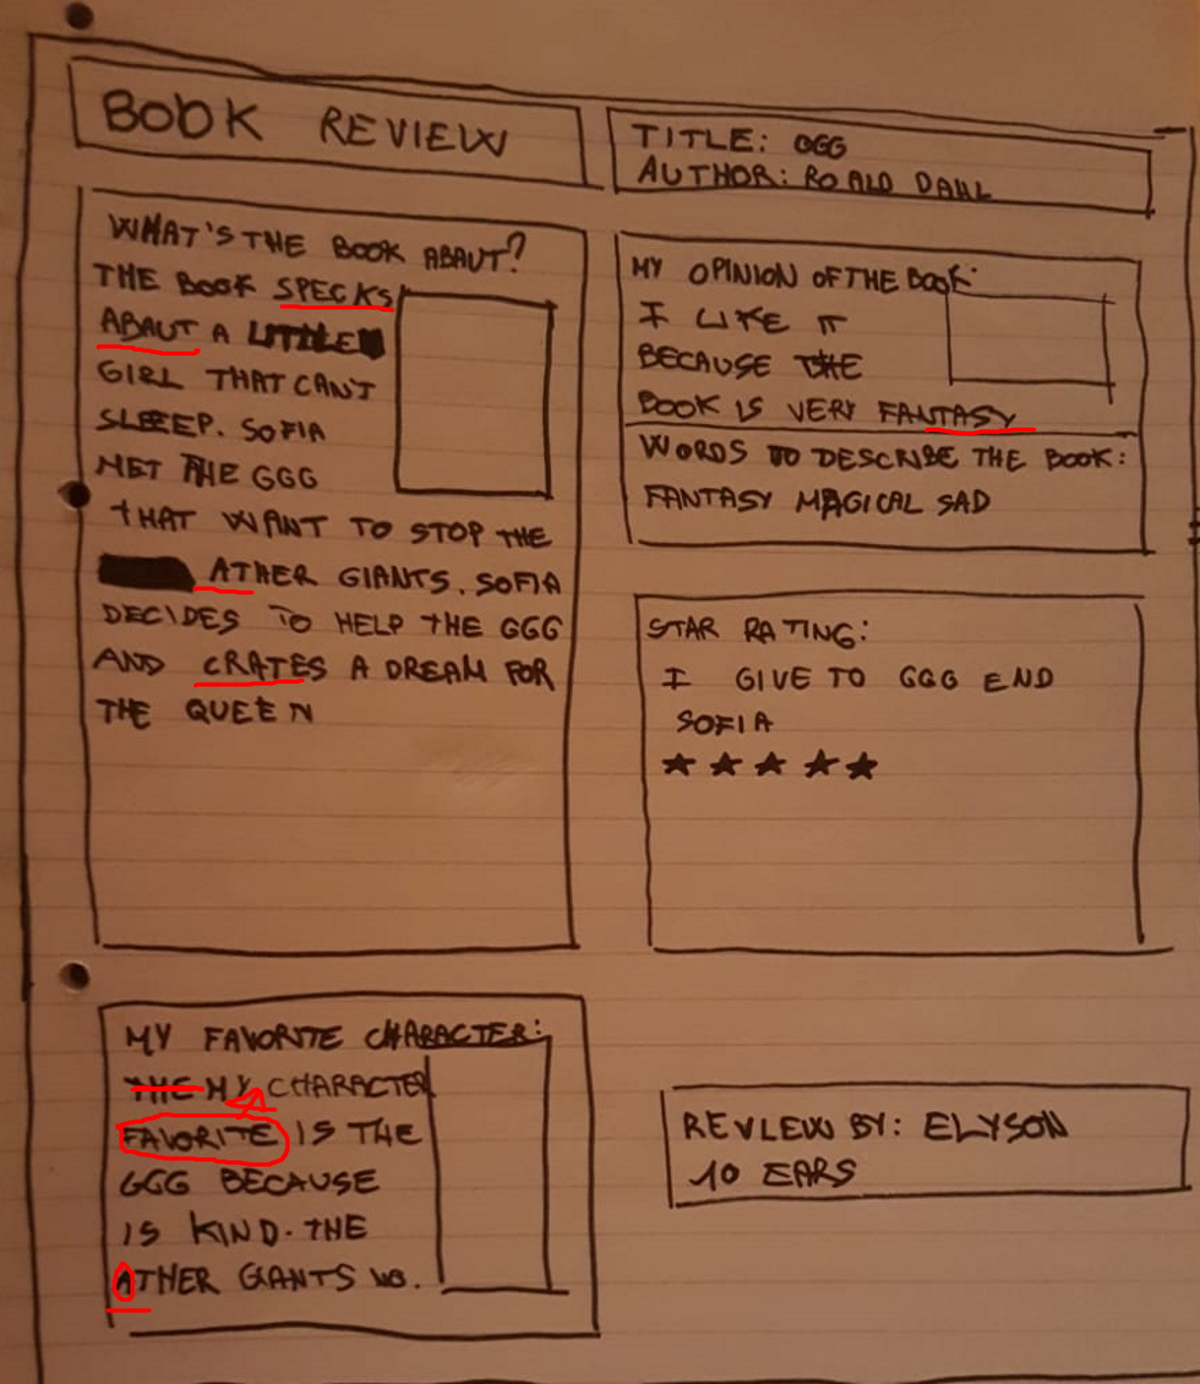 BOOK REVIEW
TITLE: GGG
AUTHOR: ROALD DAHL
WHAT'S THE BOOK ABAUT?
THE BOOK SPECKS
ABAUT A LITTLE
GIRL THAT CAN'T
SLEEP. SOFIA
MET THE GGG
THAT WANT TO STOP THE
ATHER GIANTS. SOFIA
DECIDES TO HELP THE GGG
AND CRATES A DREAM FOR
THE QUEEN
MY OPINION OF THE BOOK:
I LIKE IT
BECAUSE THE
BOOK IS VERY FANTASY
WORDS TO DESCRIBE THE BOOK:
FANTASY MAGICAL SAD
STAR RATING:
I GIVE TO GGG END
SOFIA
★★★★★
MY FAVORITE CHARACTER:
THE MY CHARACTER
FAVORITE IS THE
GGG BECAUSE
IS KIND. THE
ATHER GIANTS NO.
REVIEW BY: ELYSON
10 EARS